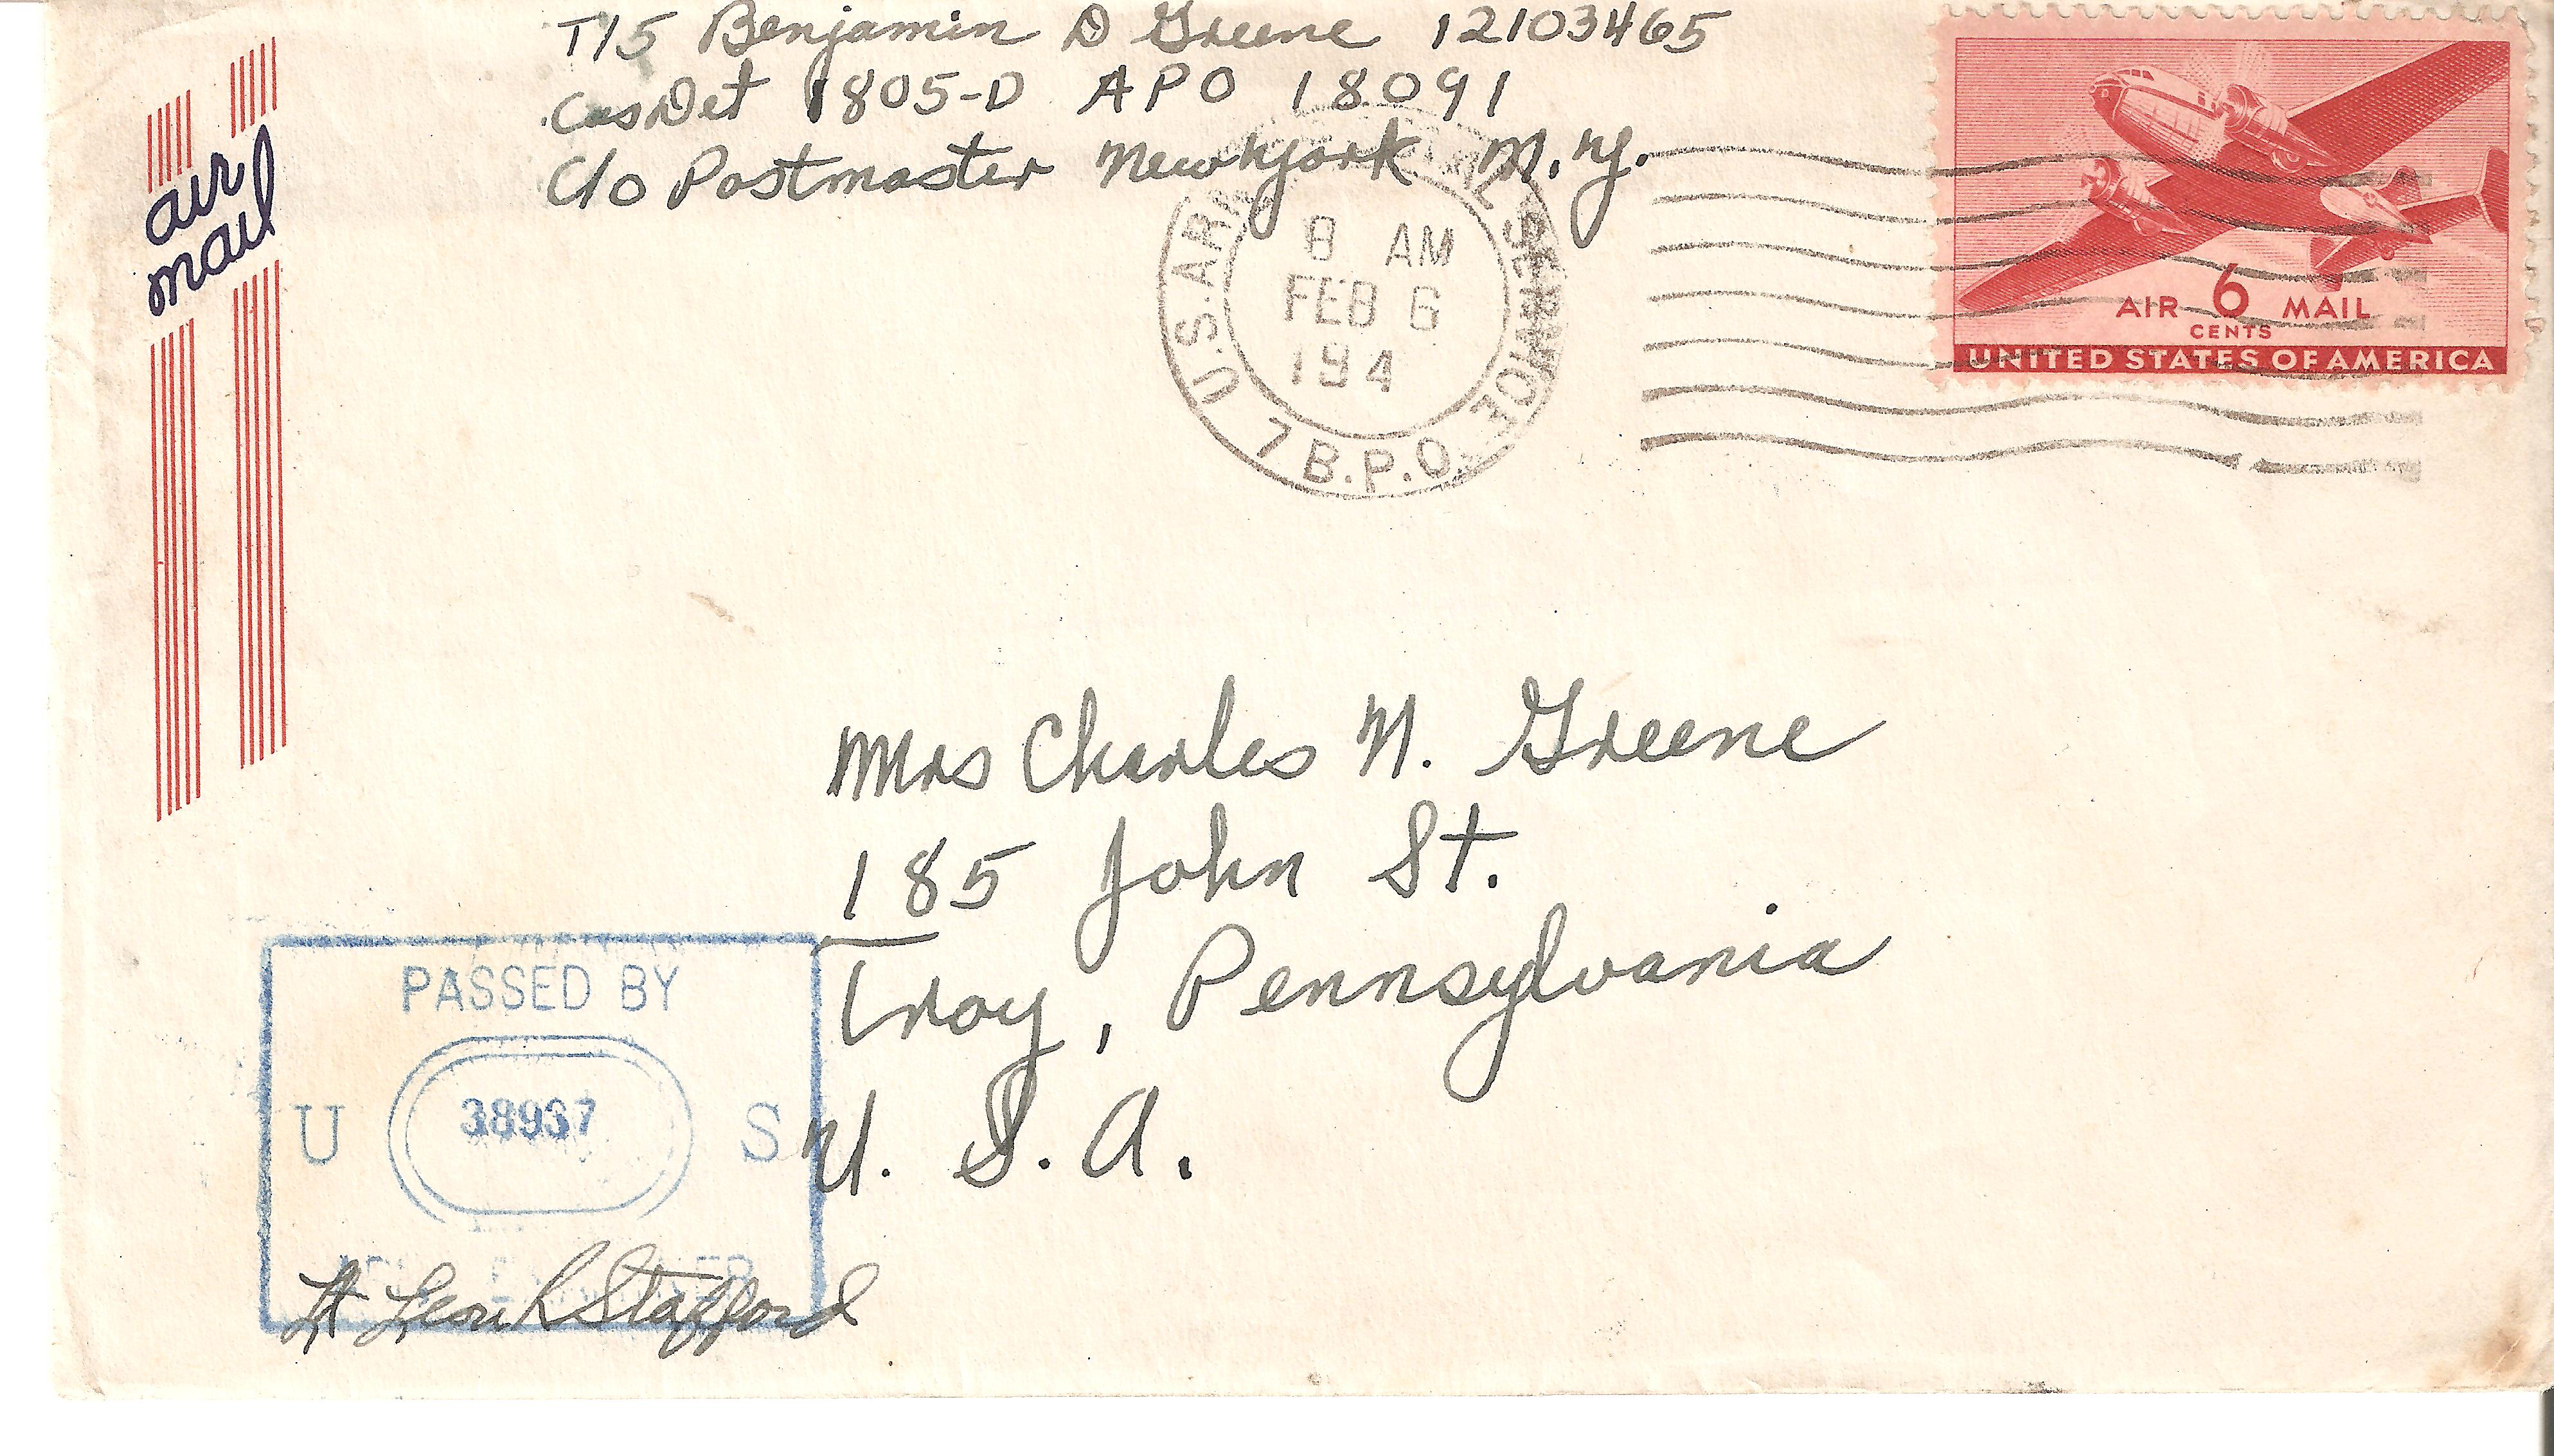 T/5 Benjamin D Greene 12103465
Cas Det 1805-D APO 18091
C/o Postmaster New York N.Y.
air
mail
U.S. ARMY POSTAL SERVICE
8 AM
FEB 6
194
7 B.P.O.
AIR 6 MAIL
CENTS
UNITED STATES OF AMERICA
Mrs Charles N. Greene
185 John St.
Troy, Pennsylvania
U. S. A.
PASSED BY
U 38937 S
Lt Leon R Stafford